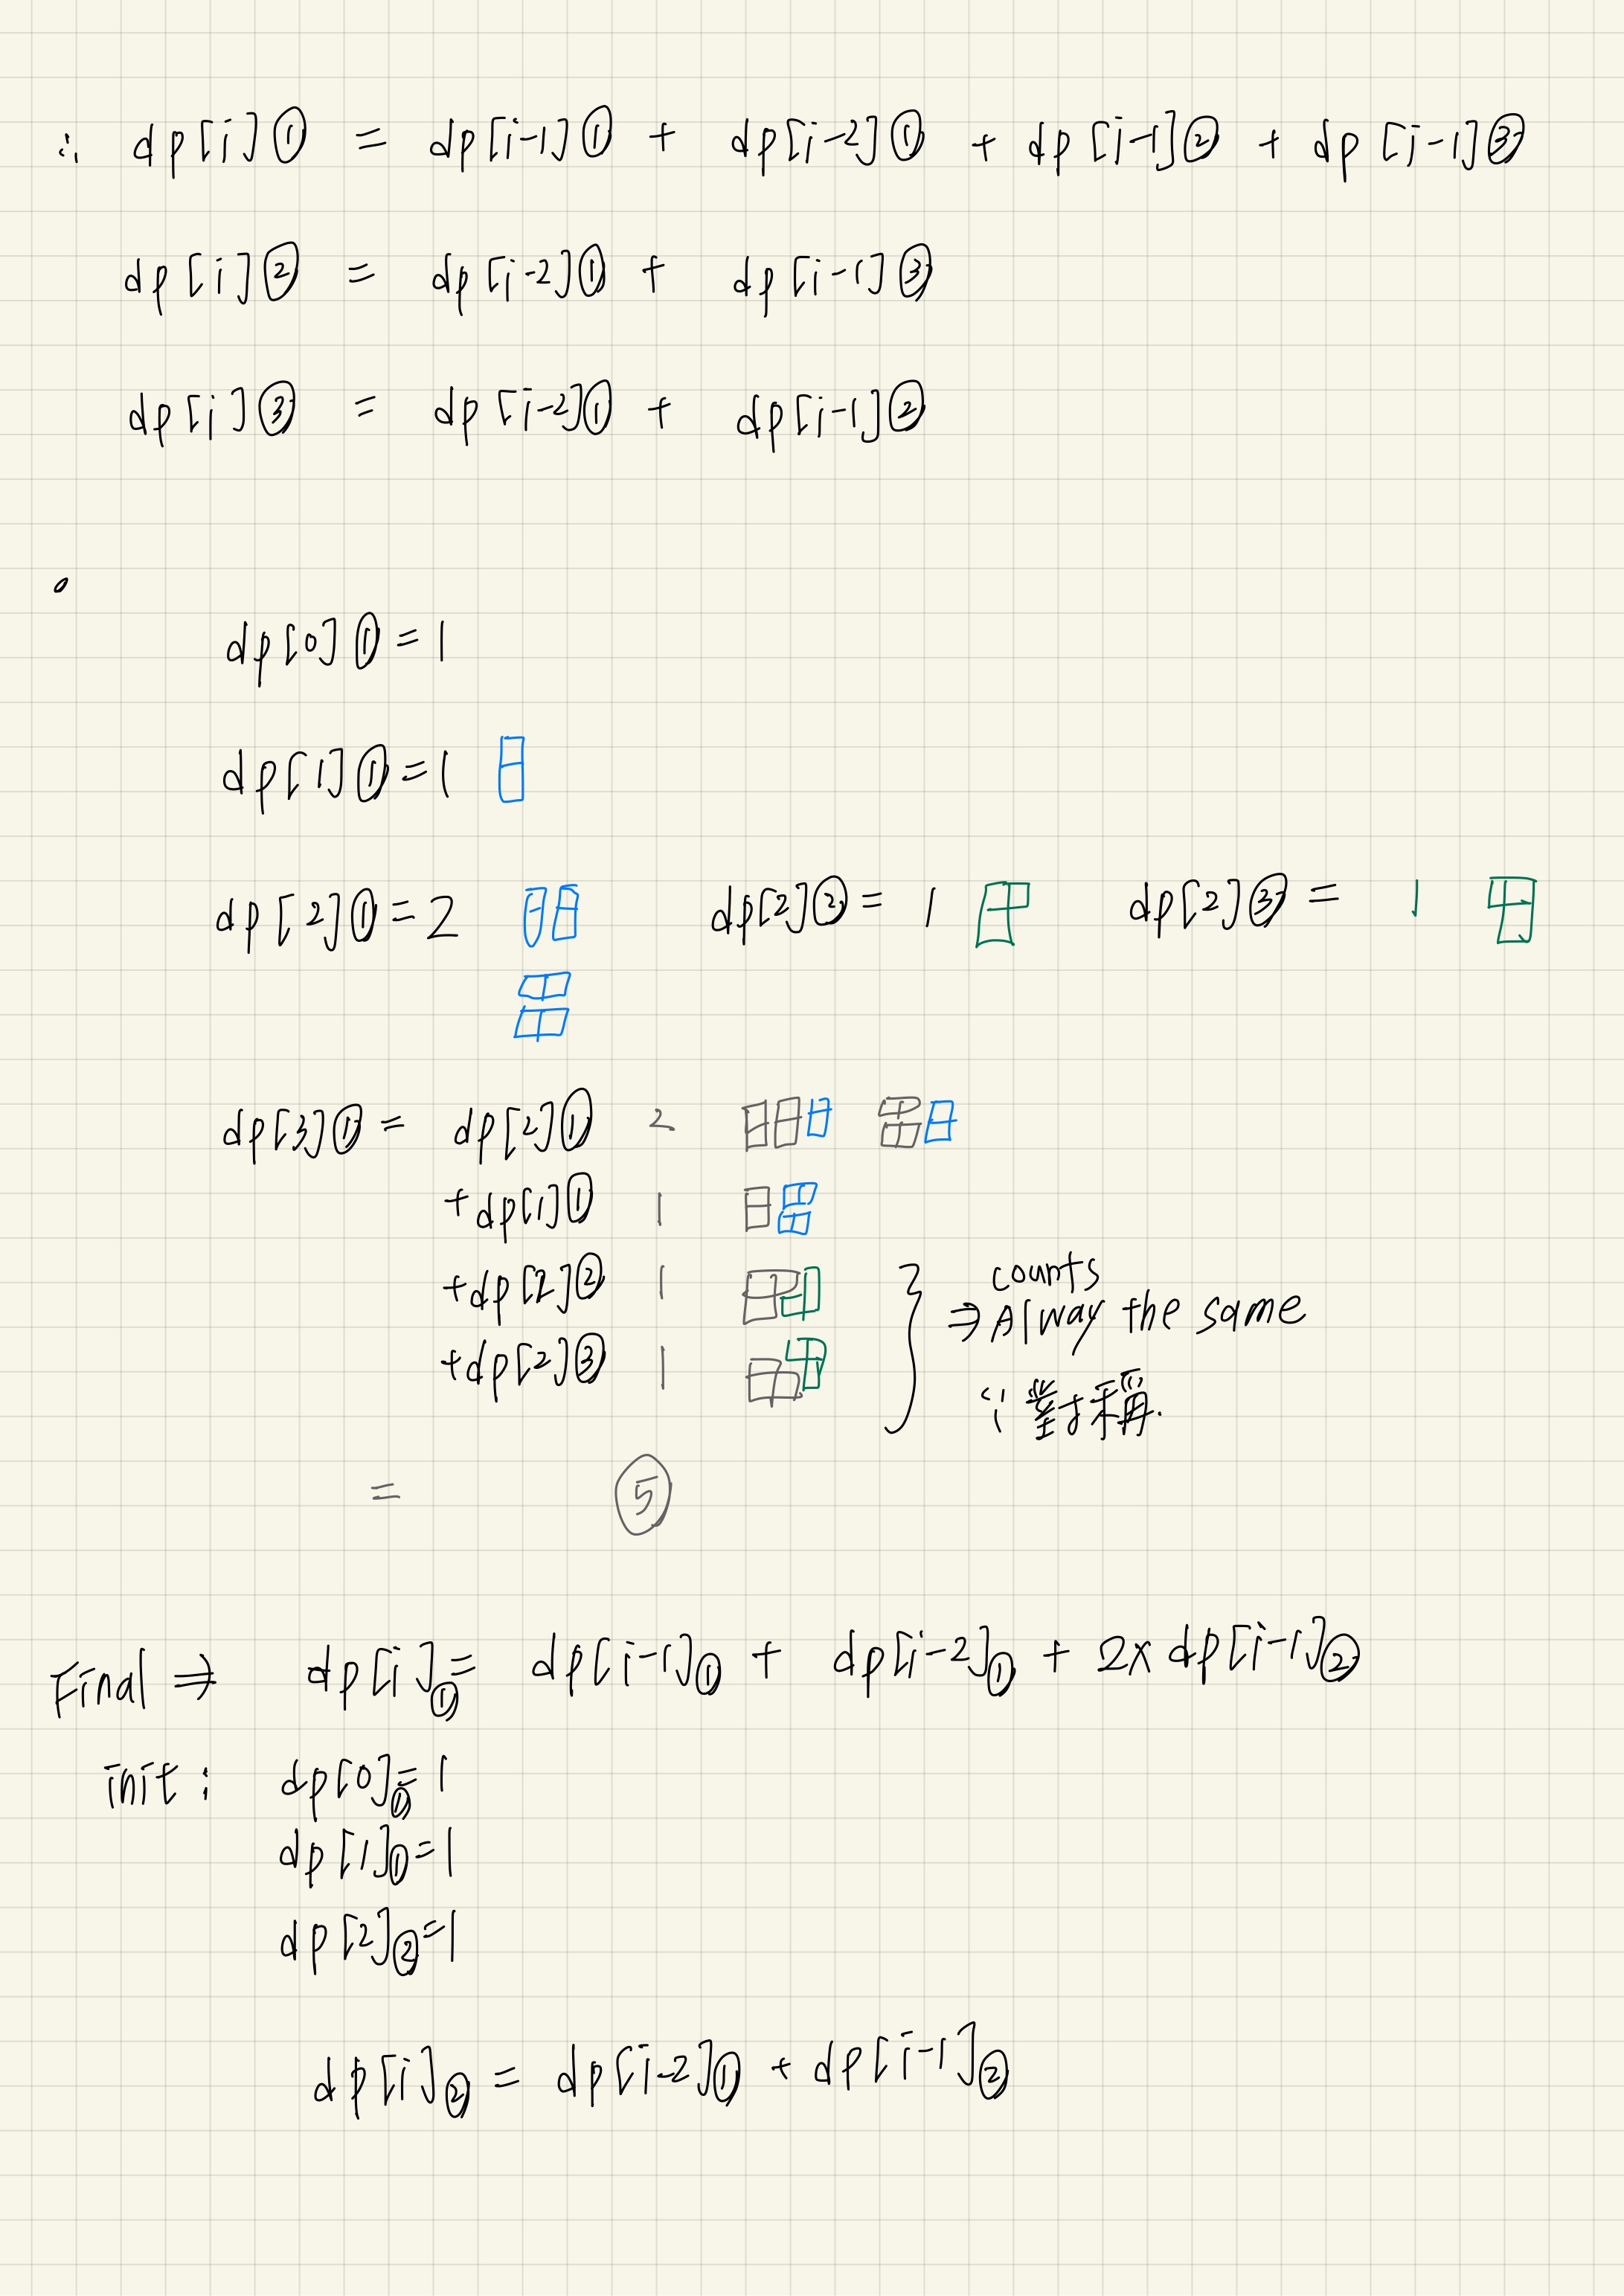 ∴ dp[i]① = dp[i-1]① + dp[i-2]① + dp[i-1]② + dp[i-1]③
dp[i]② = dp[i-2]① + dp[i-1]③
dp[i]③ = dp[i-2]① + dp[i-1]②
dp[0]① = 1
dp[1]① = 1
dp[2]① = 2 dp[2]② = 1 dp[2]③ = 1
dp[3]① = dp[2]① 2
+dp[1]① 1
+dp[2]② 1
+dp[2]③ 1
counts
⇒ Alway the same
∵ 對稱.
= ⑤
Final ⇒ dp[i]① = dp[i-1]① + dp[i-2]① + 2x dp[i-1]②
init: dp[0]① = 1
dp[1]① = 1
dp[2]② = 1
dp[i]② = dp[i-2]① + dp[i-1]②